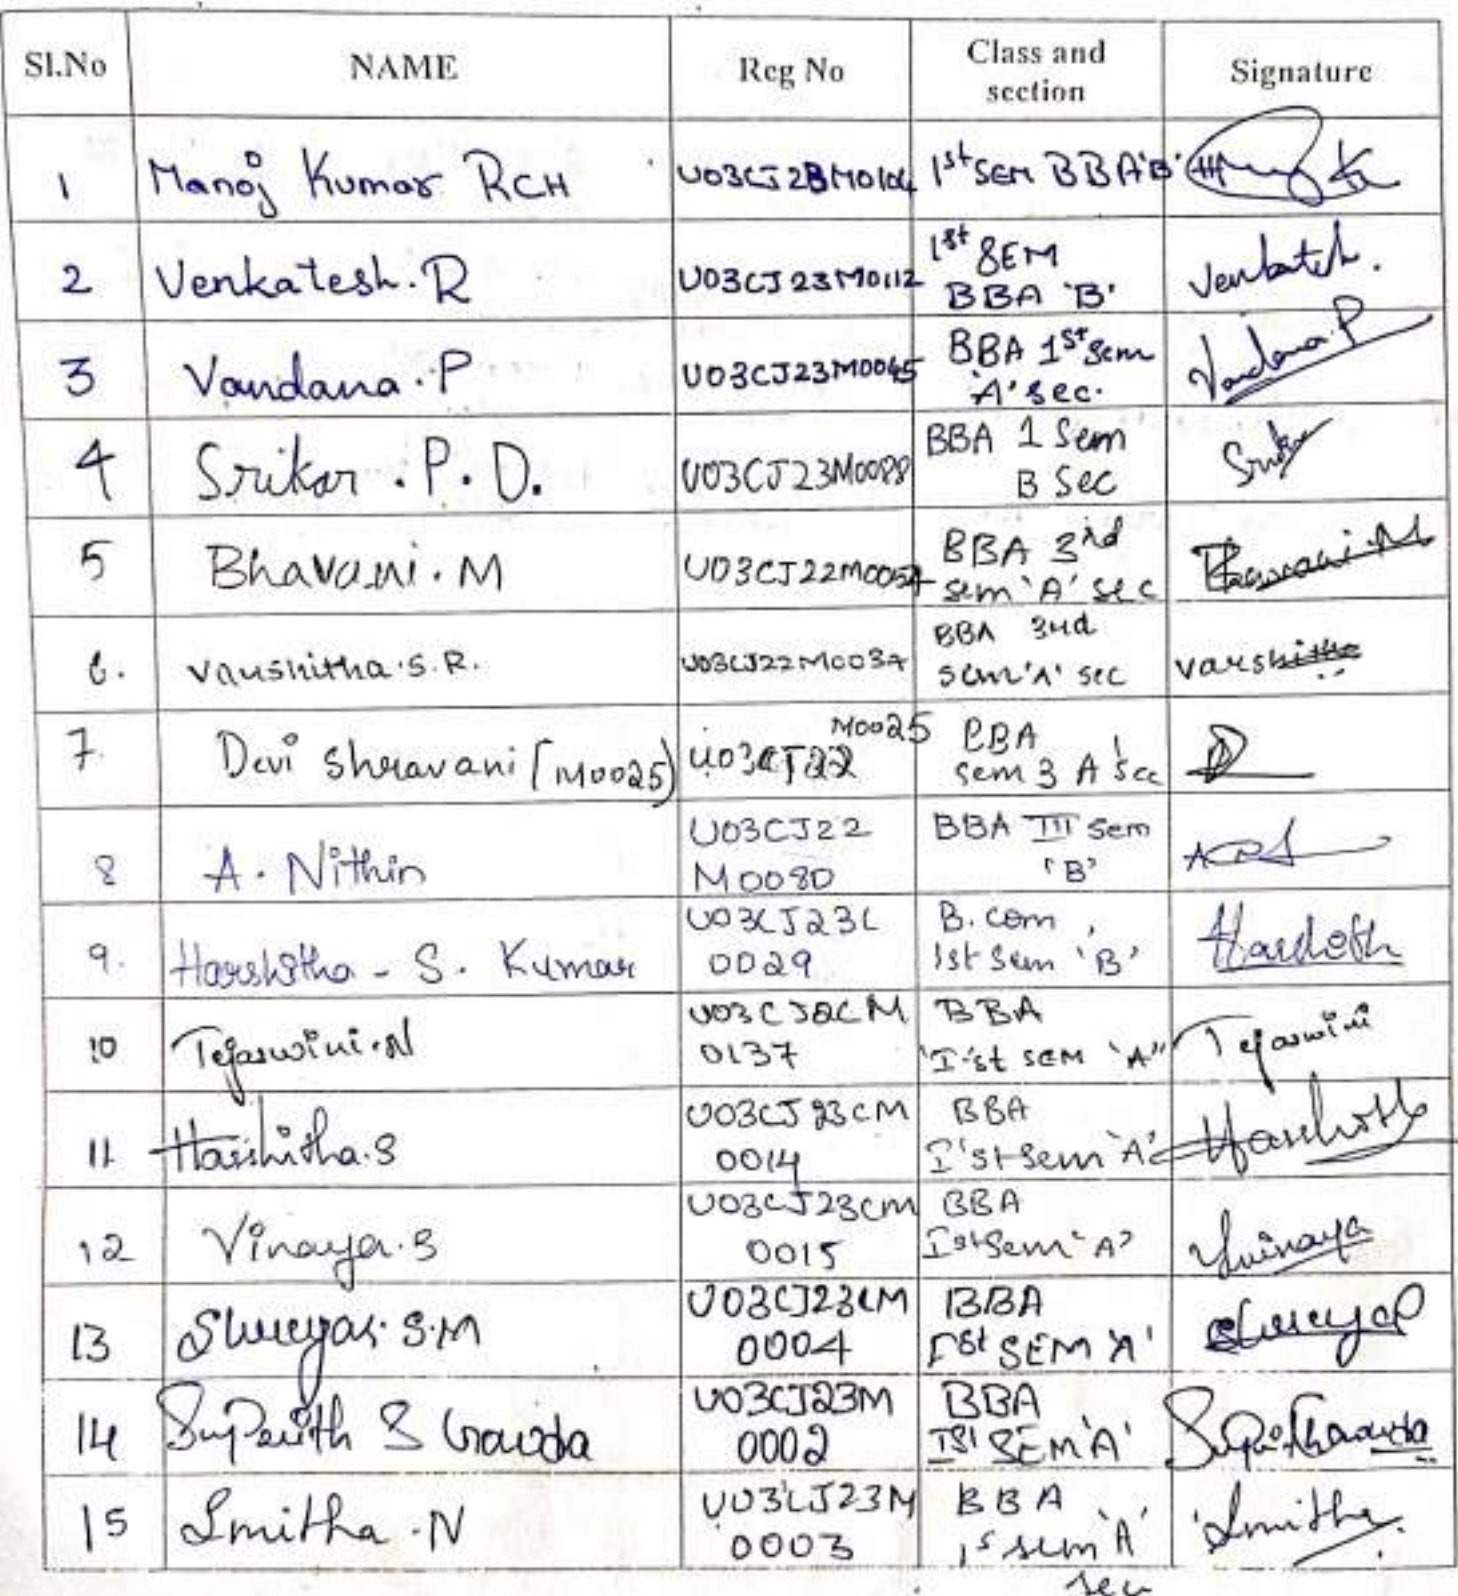 Sl.No NAME Reg No Class and section Signature
1 Manoj Kumar RCH 1st SEM BBA 'B'
2 Venkatesh. R U03CJ23M0112 1st SEM BBA 'B' Venkatesh.
3 Vandana. P U03CJ23M0045 BBA 1st Sem 'A' sec. Vandana. P
4 Srikar. P. D. U03CJ23M0088 BBA 1 Sem B Sec
5 Bhavani. M U03CJ22M0054 BBA 3rd sem 'A' sec Bhavani. M
6. Varshitha. S. R. U03CJ22M0034 BBA 3rd sem 'A' sec Varshitha
7. Devi Shravani (M0025) U03CJ22 M0025 BBA sem 3 A sec
8 A. Nithin U03CJ22 M0080 BBA III Sem 'B'
9. Harshitha - S. Kumar U03CJ23C 0029 B.com, 1st Sem 'B'
10 Tejaswini. N 0137 BBA 'I'st SEM 'A'' Tejaswini
11 Harshitha. S U03CJ23CM 0014 BBA I'st sem 'A'
12 Vinaya. S U03CJ23CM 0015 BBA Ist Sem 'A' Vinaya
13 Shreyas. S. M U03CJ23CM 0004 BBA Ist SEM 'A'
14 Supreeth S Gowda U03CJ23M 0002 BBA Ist SEM 'A'
15 Smitha. N U03CJ23M 0003 BBA 1st sem 'A' sec Smitha.